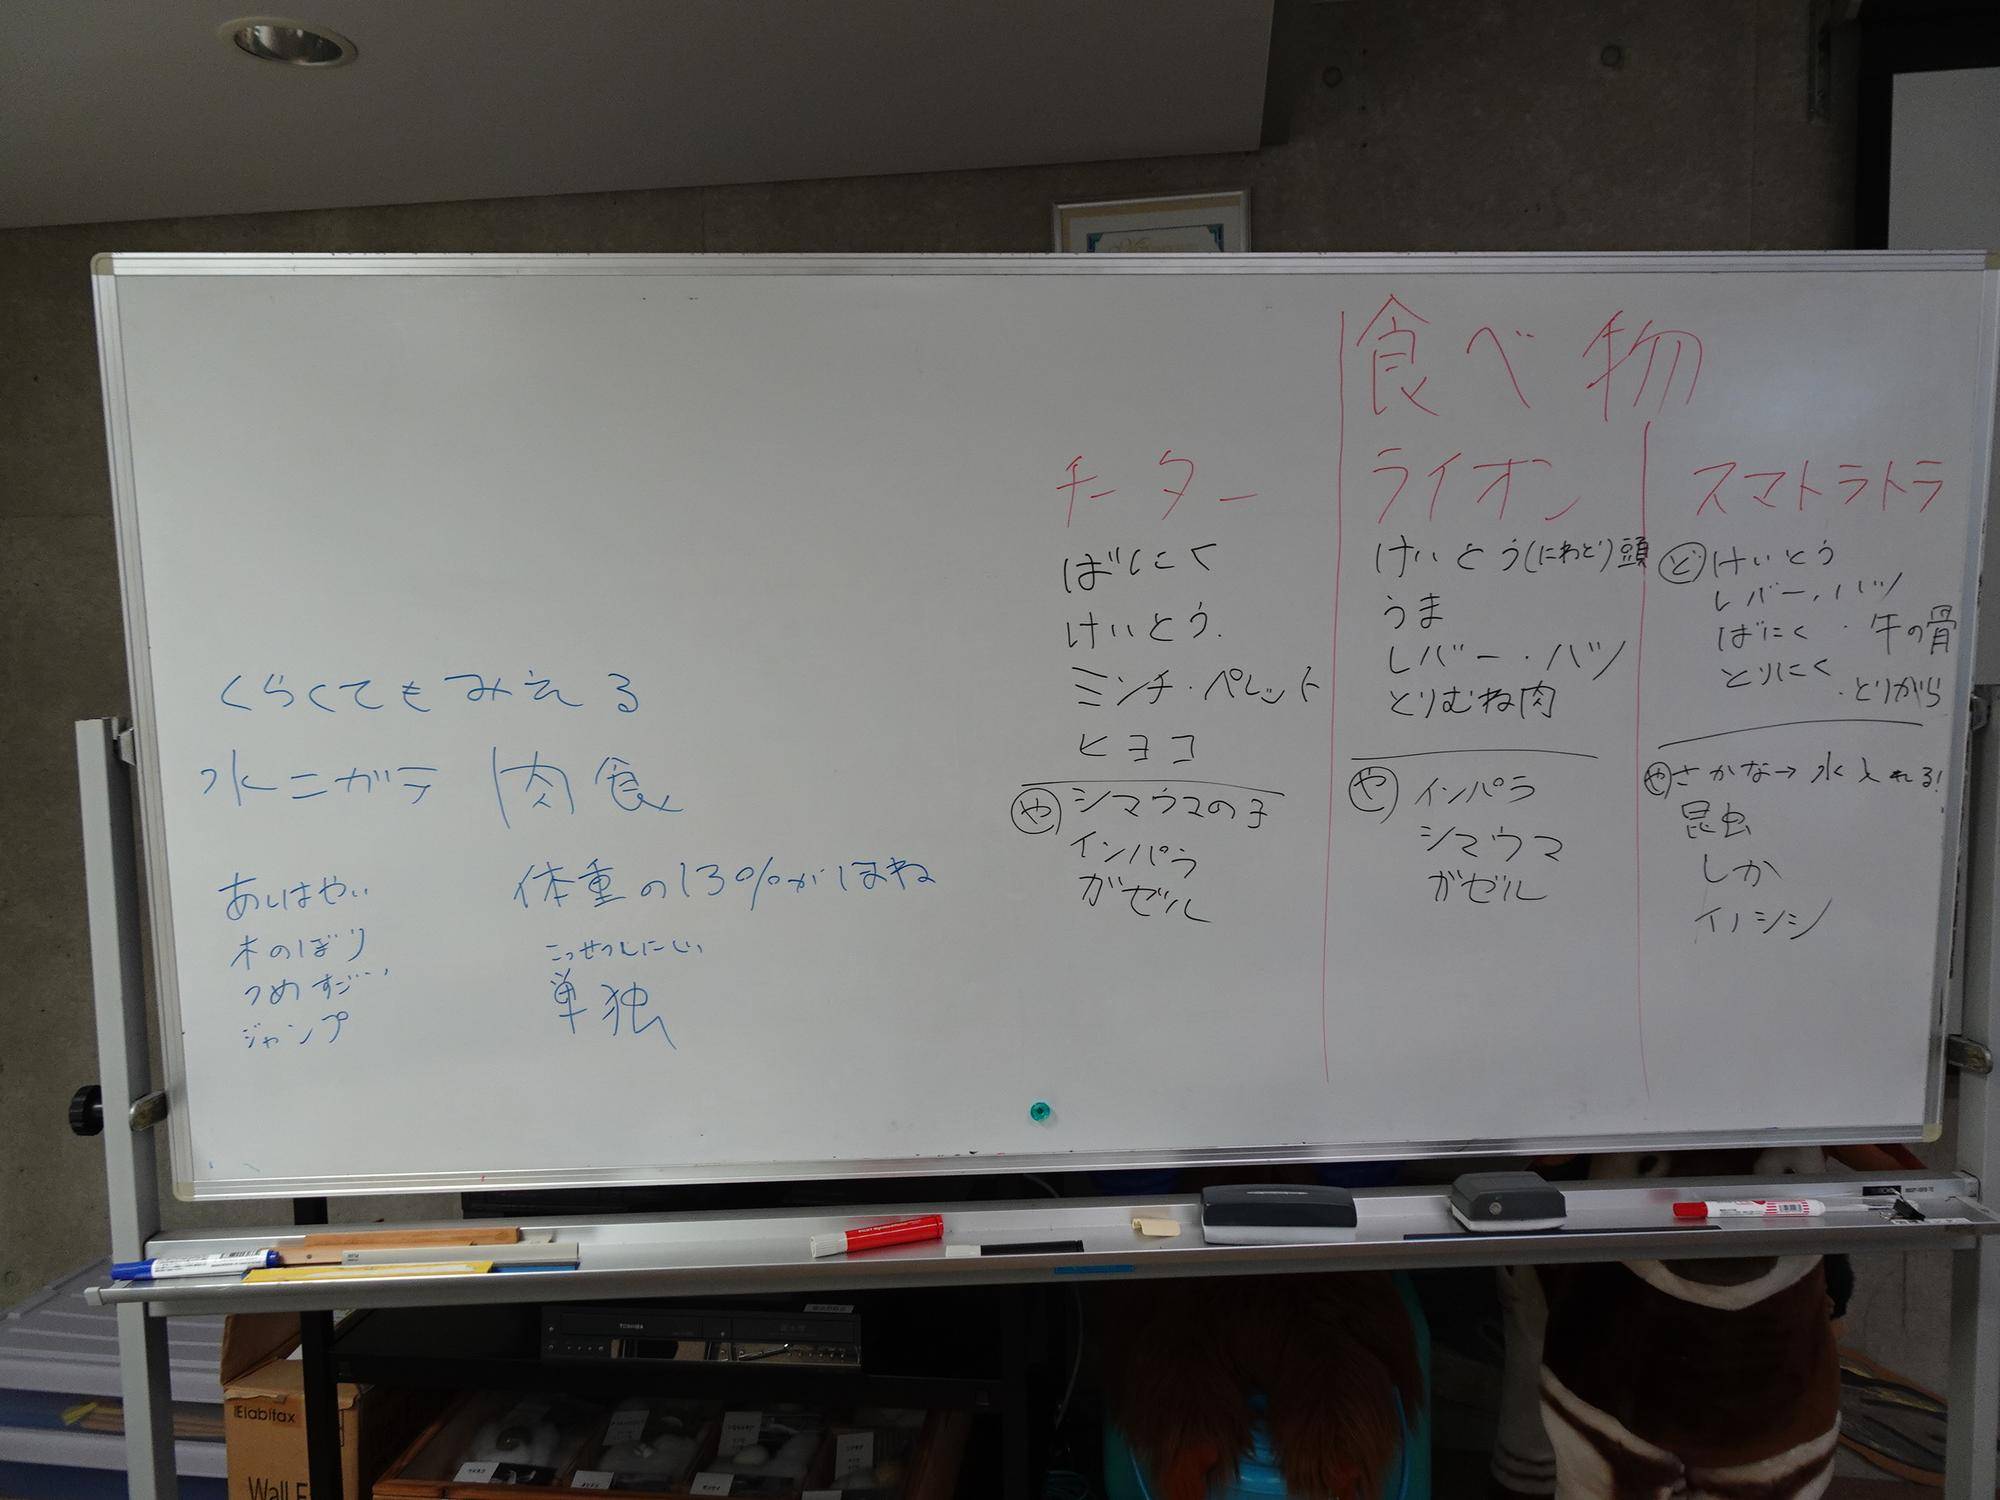 食べ物
チーター
ばにく
けいとう.
ミンチ・ペレット
ヒヨコ
や シマウマの子
インパラ
ガゼル
ライオン
けいとう(にわとり)頭
うま
レバー・ハツ
とりむね肉
や インパラ
シマウマ
ガゼル
スマトラトラ
ど けいとう
レバー・ハツ
ばにく・牛の骨
とりにく
・とりがら
や さかな→水入れる!
昆虫
しか
イノシシ
くらくてもみえる
水ニガテ 肉食
あしはやい
木のぼり
つめすごい
ジャンプ
体重の13%がほね
こっせつしにくい
単独
TOSHIBA
Elabitax
Wall